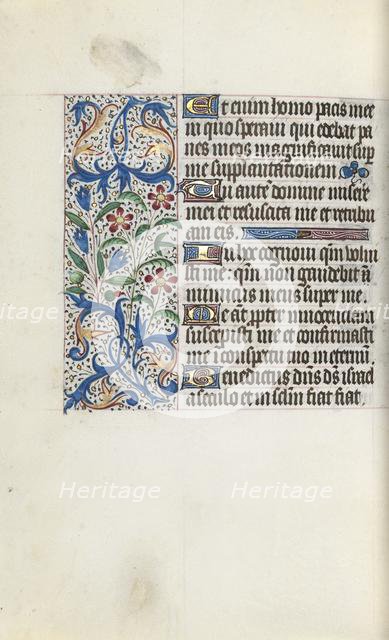 Et enim homo pacis mee
in quo speravi qui edebat pa
nes meos magnificavit sup
me supplantationem
Tu aute domine misere
mei et resuscita me et retribu
am eis
In hoc cognovi qm volui
sti me: qm non gaudebit
inimicus meus super me
Me at ppter innocentiam
suscepisti in et confirmasti
me i conspectu tuo in eternu
Benedictus dns ds israel
a seculo et in sclm fiat fiat
Heritage Heritage
Heritage Heritage
Heritage Heritage